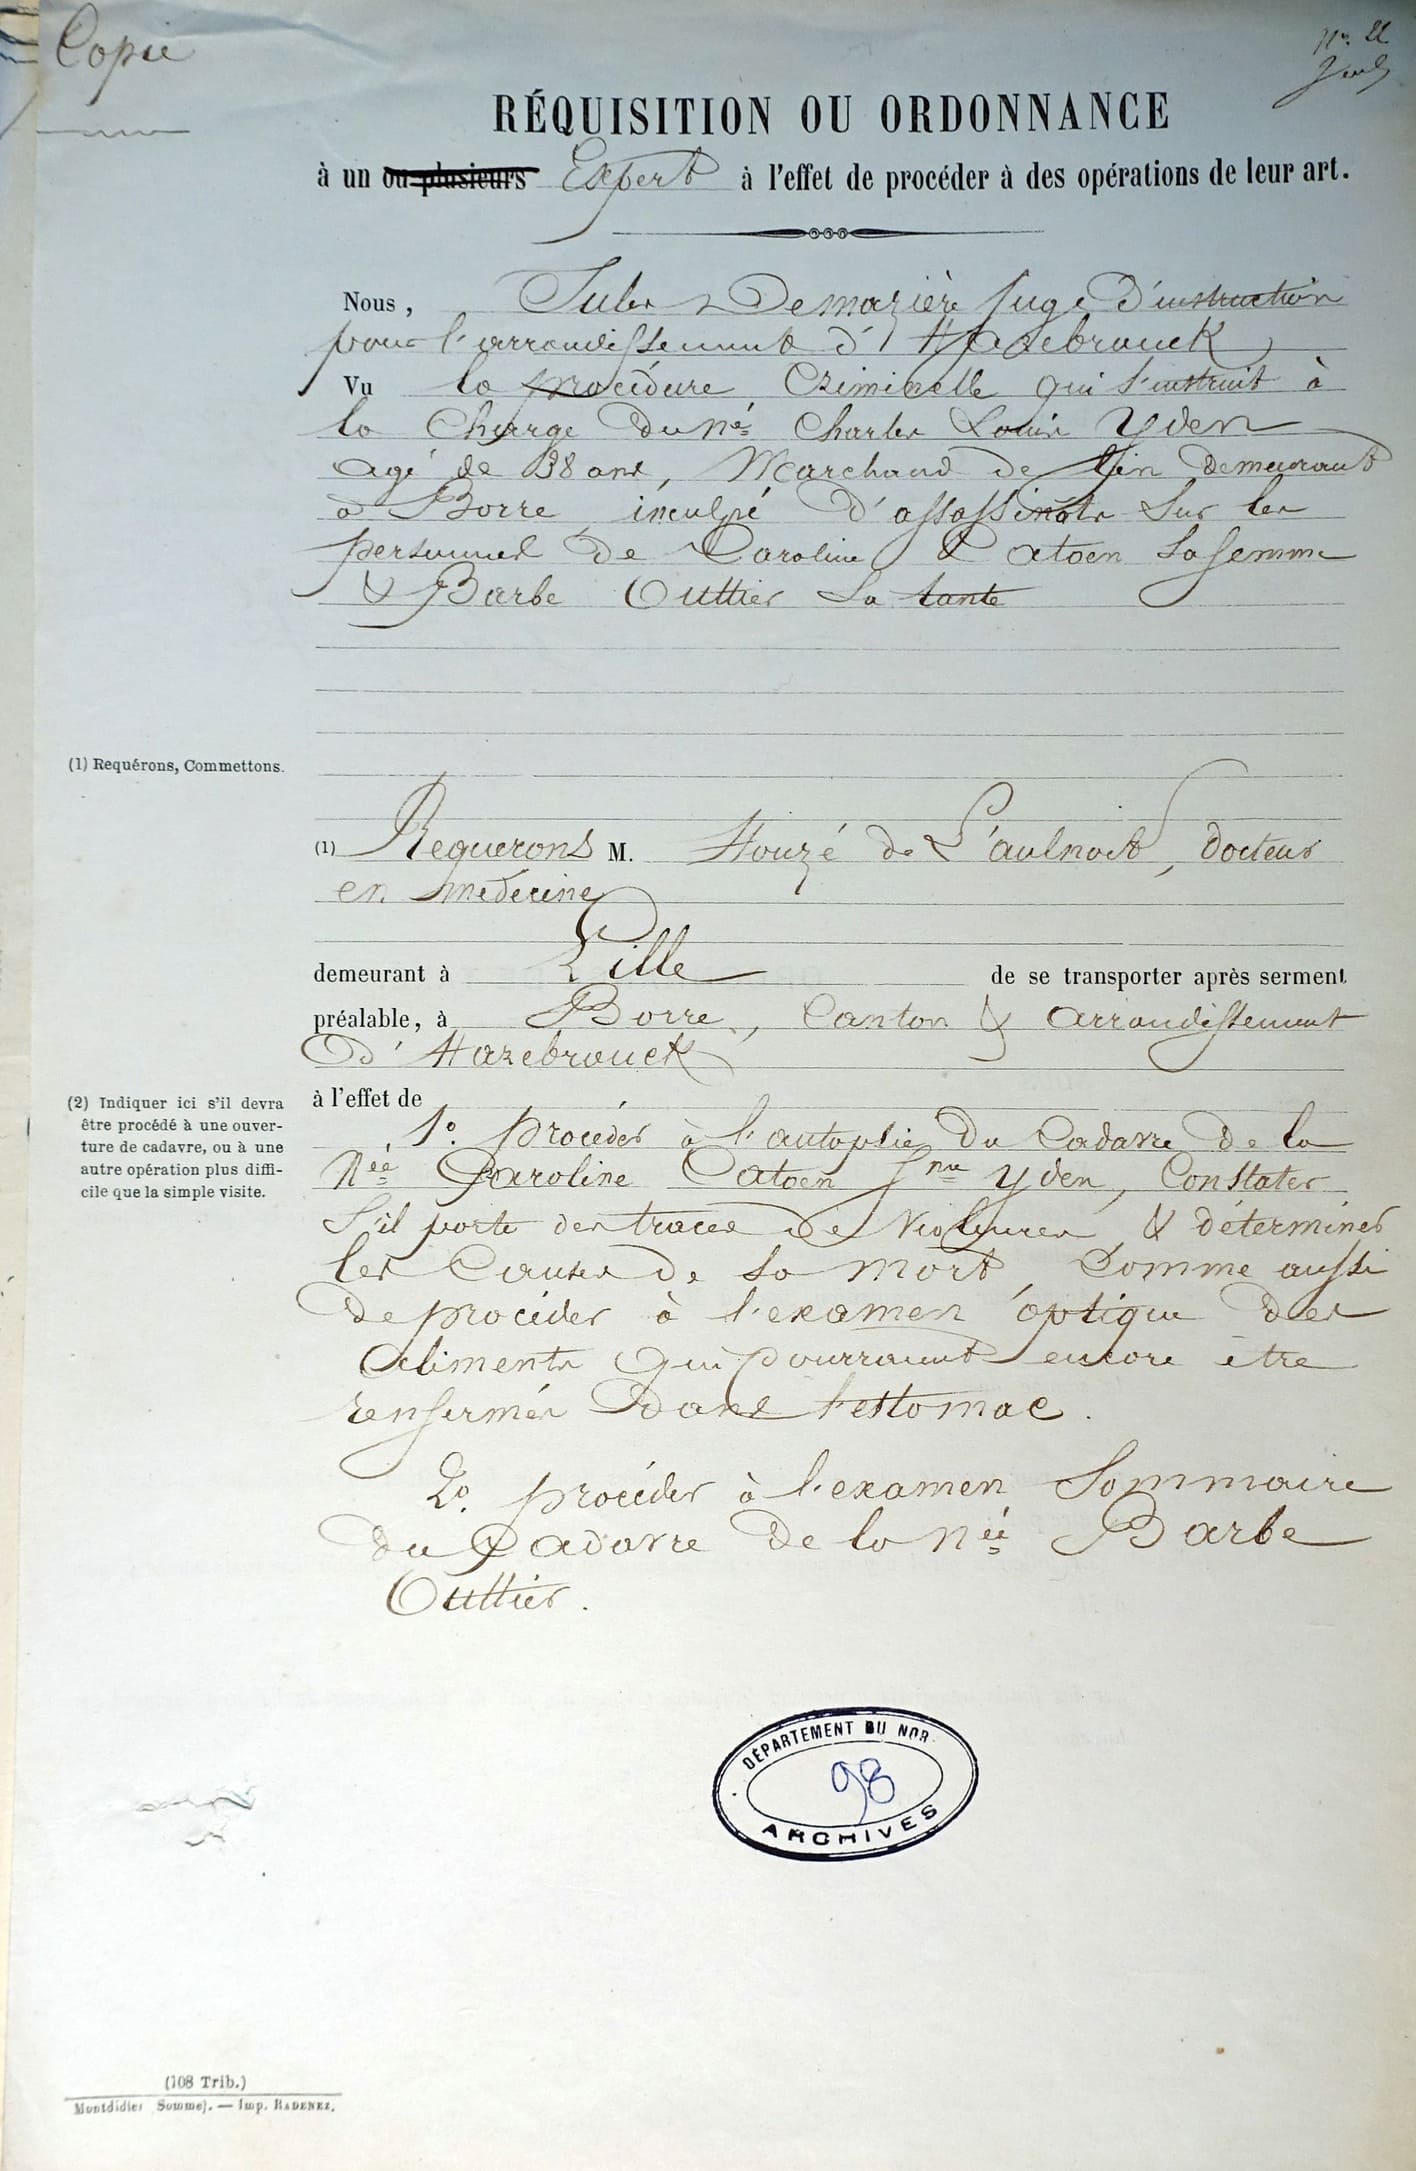 Copie
RÉQUISITION OU ORDONNANCE
à un ou plusieurs Expert à l'effet de procéder à des opérations de leur art.
Nous, Jules Demazière Juge d'instruction
pour l'arrondissement d'Hazebrouck
Vu la procédure Criminelle qui s'instruit à
la Charge du né Charles Louis Yden
agé de 38 ans, Marchand de lin demeurant
à Borre, inculpé d'assassinats sur les
personnes de Caroline Catoen sa femme
& Barbe Outtier sa tante
(1) Requérons, Commettons.
(1) Requerons M. Houzé de L'aulnoit, docteur
en médecine
demeurant à Lille de se transporter après serment
préalable, à Borre, Canton & arrondissement
d'Hazebrouck
(2) Indiquer ici s'il devra
être procédé à une ouver-
ture de cadavre, ou à une
autre opération plus diffi-
cile que la simple visite.
à l'effet de
1o. procéder à l'autopsie du Cadavre de la
née Caroline Catoen fme Yden, Constater
S'il porte des traces de violences & déterminer
les Causes de sa mort, Comme aussi
de procéder à l'examen optique des
aliments qui pourraient encore être
renfermés dans l'estomac.
2o. procéder à l'examen Sommaire
du Cadavre de la née Barbe
Outtier.
DÉPARTEMENT DU NOR
98
ARCHIVES
(108 Trib.)
Montdidier Somme). — Imp. RADENEZ.